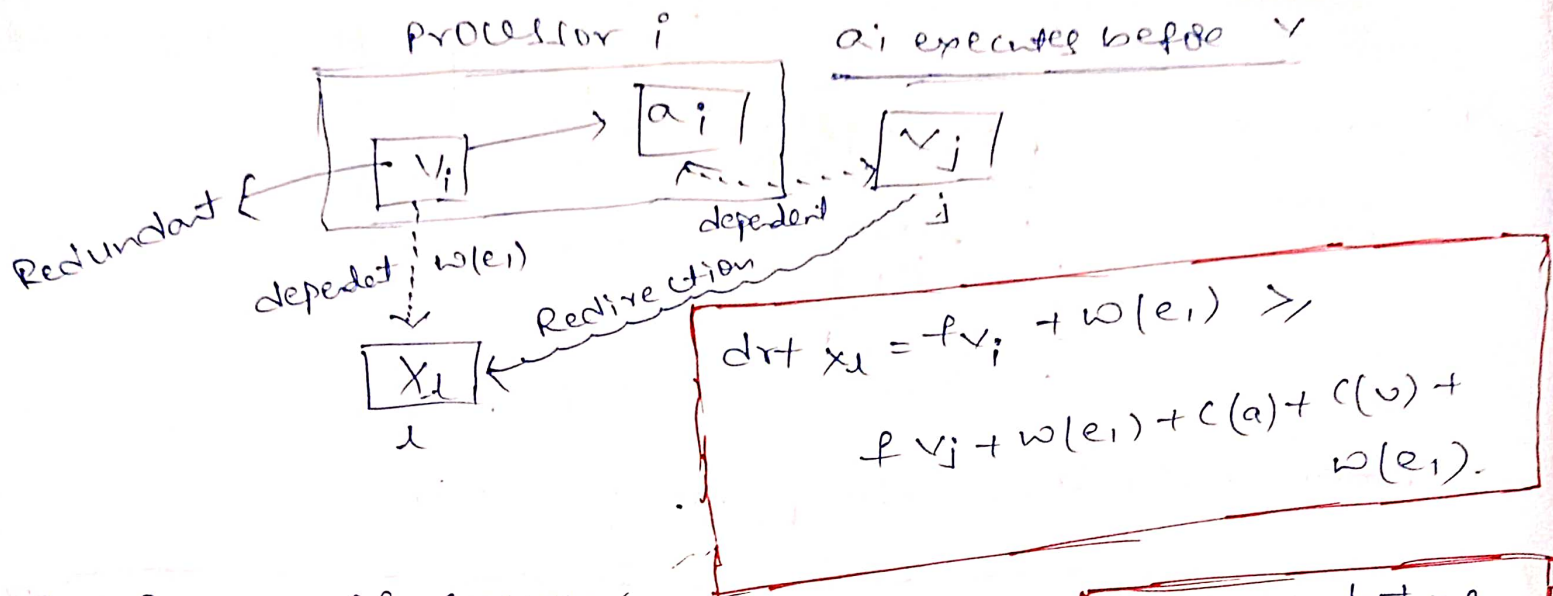 Processor i
ai executes before v
ai
vi
vj
j
Redundant
dependent
depedet
w(e1)
Redirection
xl
l
drt xl = fvi + w(e1) ≥
fvj + w(e1) + c(a) + c(v) +
w(e1).